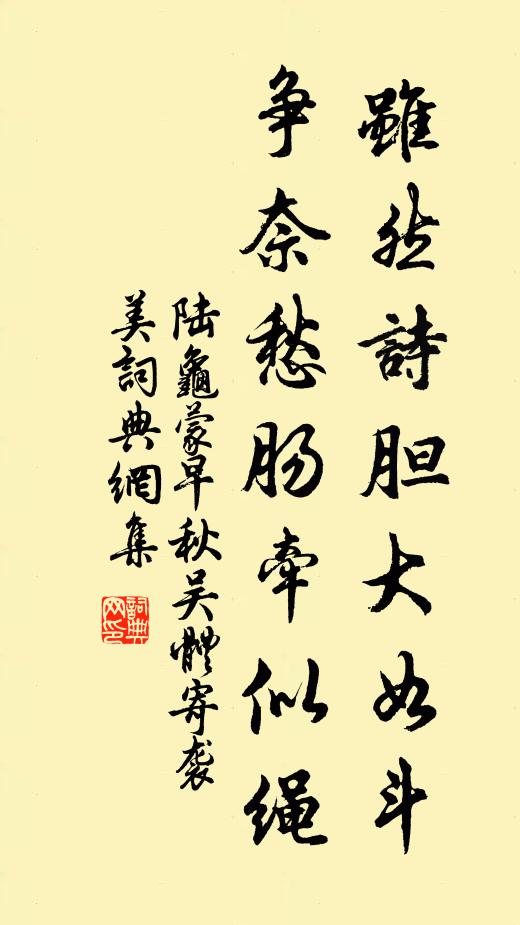 雖然詩胆大如斗
争奈愁肠牽似绳
陆龜蒙早秋吴體寄袭
美詞典網集
詞典
网印